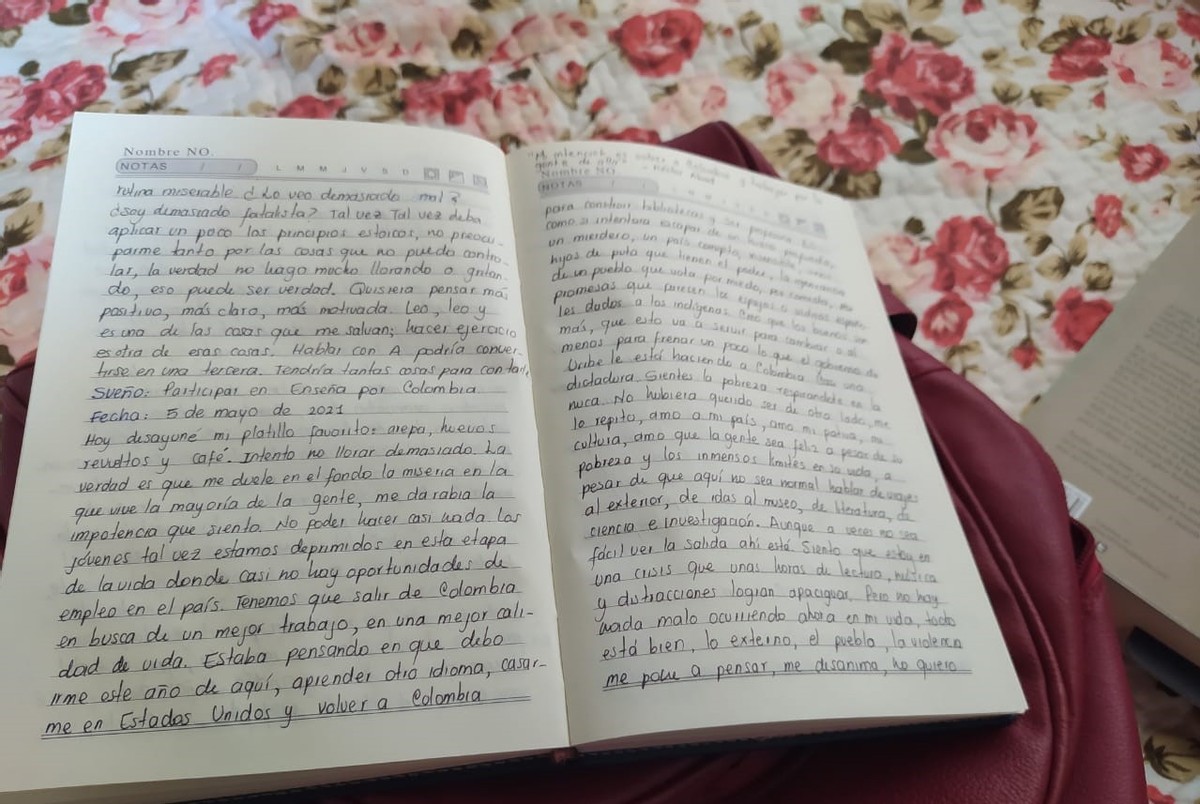 Nombre NO.
NOTAS / / L M M J V S D
rutina miserable ¿Lo veo demasiado mal?
¿soy demasiado fatalista? Tal vez Tal vez deba
aplicar un poco los principios estoicos, no preocu-
parme tanto por las cosas que no puedo contro-
lar, la verdad no hago mucho llorando o gritan-
do, eso puede ser verdad. Quisiera pensar más
positivo, más claro, más motivada. Leo, leo y
es una de las cosas que me salvan; hacer ejercicio
es otra de esas cosas. Hablar con A podría conver-
tirse en una tercera. Tendría tantas cosas para contarle
Sueño: Participar en Enseña por Colombia
Fecha: 5 de mayo de 2021
Hoy desayuné mi platillo favorito: arepa, huevos
revueltos y café. Intento no llorar demasiado. La
verdad es que me duele en el fondo la miseria en la
que vive la mayoría de la gente, me da rabia la
impotencia que siento. No poder hacer casi nada los
jóvenes tal vez estamos deprimidos en esta etapa
de la vida donde casi no hay oportunidades de
empleo en el país. Tenemos que salir de Colombia
en busca de un mejor trabajo, en una mejor cali-
dad de vida. Estaba pensando en que debo
irme este año de aquí, aprender otro idioma, casar-
me en Estados Unidos y volver a Colombia
es volver a
gente de allá"
Nombre NO
NOTAS
para construir bibliotecas y ser profesora.
como si intentara escapar de un
un mierdero, un país
hijos de puta que tienen el poder, la ignorancia
de un pueblo que vota por miedo, por comida, por
promesas que parecen los espejos o vidrios
les dados a los indígenas. Creo que los buenos son
más, que esto va a servir para cambiar o al
menos para frenar un poco lo que el gobierno de
Uribe le está haciendo a Colombia. una
dictadura. Sientes la pobreza respirándote en la
nuca. No hubiera querido ser de otro lado, me
lo repito, amo a mi país, amo mi patria, su
cultura, amo que la gente sea feliz a pesar de su
pobreza y los inmensos límites en su vida, a
pesar de que aquí no sea normal hablar de viajes
al exterior, de idas al museo, de literatura, de
ciencia e investigación. Aunque a veces no sea
fácil ver la salida ahí está. Siento que estoy en
una crisis que unas horas de lectura, música
y distracciones logran apaciguar. Pero no hay
nada malo ocurriendo ahora en mi vida, todo
está bien, lo externo, el pueblo, la violencia
me pone a pensar, me desanima, no quiero